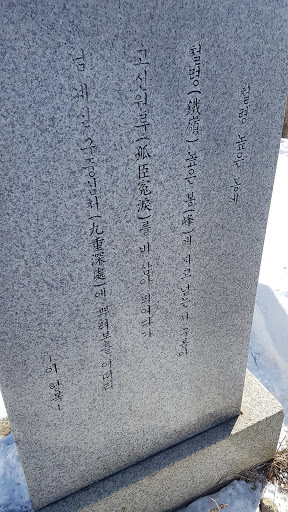 철령 높은 봉에
철령(鐵嶺) 높은 봉(峰)에 자고 넘는 저 구름아
고신원루(孤臣寃淚)를 비 삼아 띄여다가
님 계신 구중심처(九重深處)에 어떠리
-이 항복-